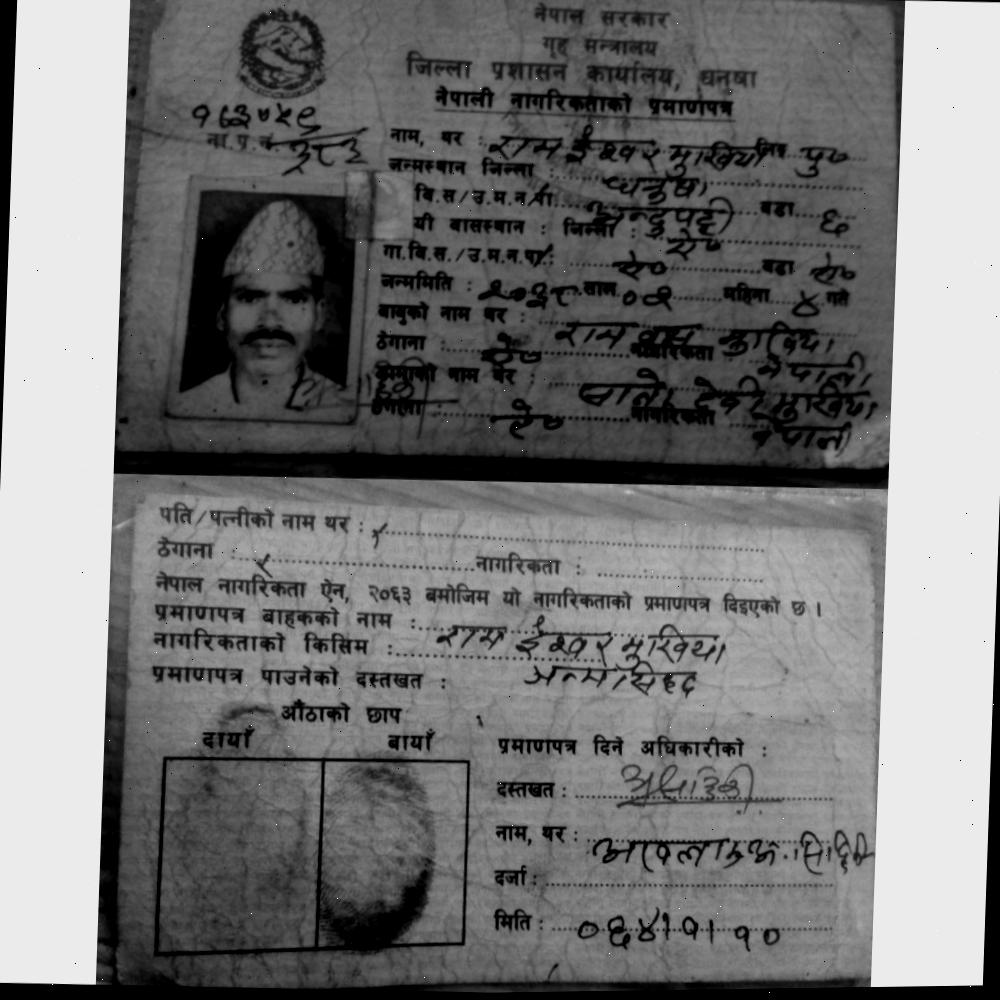 नेपाल सरकार
गृह मन्त्रालय
जिल्ला प्रशासन कार्यालय, धनुषा
नेपाली नागरिकताको प्रमाणपत्र
ना.प्र.नं.
नाम, थर : राम ईश्वर मुखिया लिङ्ग पु०
जन्मस्थान जिल्ला : धनुषा
वडा ६
यी बासस्थान : जिल्ला : ऐ०
गा.वि.स./उ.म.न.पा. : ऐ० वडा ऐ०
जन्ममिति : साल महिना ४ गते
बाबुको नाम थर : राम मुखिया
ठेगाना : ऐ० नागरिकता नेपाली
आमाको नाम थर : देवी मुखिया
ठेगाना : ऐ० नागरिकता नेपाली
पति/पत्नीको नाम थर : ×
ठेगाना : × नागरिकता :
नेपाल नागरिकता ऐन, २०६३ बमोजिम यो नागरिकताको प्रमाणपत्र दिइएको छ ।
प्रमाणपत्र बाहकको नाम : राम ईश्वर मुखिया
नागरिकताको किसिम : जन्मसिद्द
प्रमाणपत्र पाउनेको दस्तखत :
औंठाको छाप
दायाँ बायाँ
प्रमाणपत्र दिने अधिकारीको :
दस्तखत :
नाम, थर :
दर्जा :
मिति : ०६४।१।१०